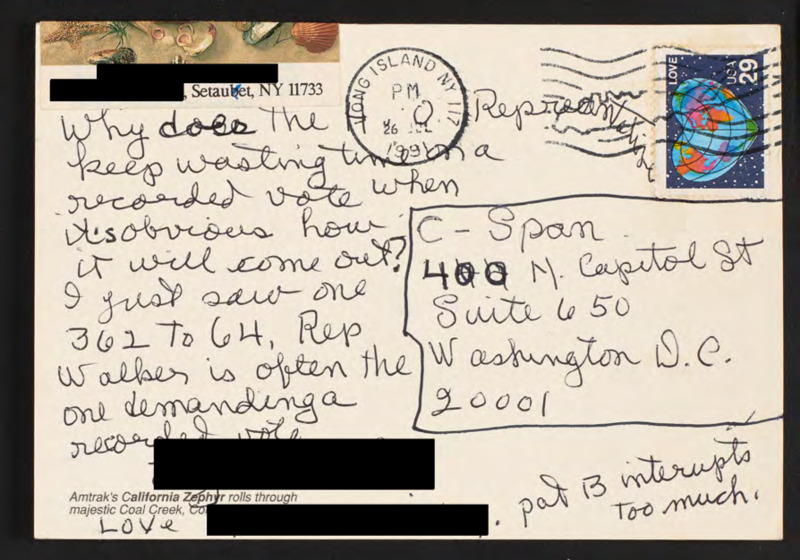 , Setauket, NY 11733
LONG ISLAND NY 117
PM
26 JUL
1991
LOVE
USA
29
Why does the
keep wasting time on a
recorded vote when
it's obvious how
it will come out?
I just saw one
362 To 64, Rep
Walker is often the
one demanding a
recorded vote
Amtrak's California Zephyr rolls through
majestic Coal Creek,
LOVE
C-Span
400 N. Capitol St
Suite 650
Washington D.C.
20001
pat B interupts
too much.